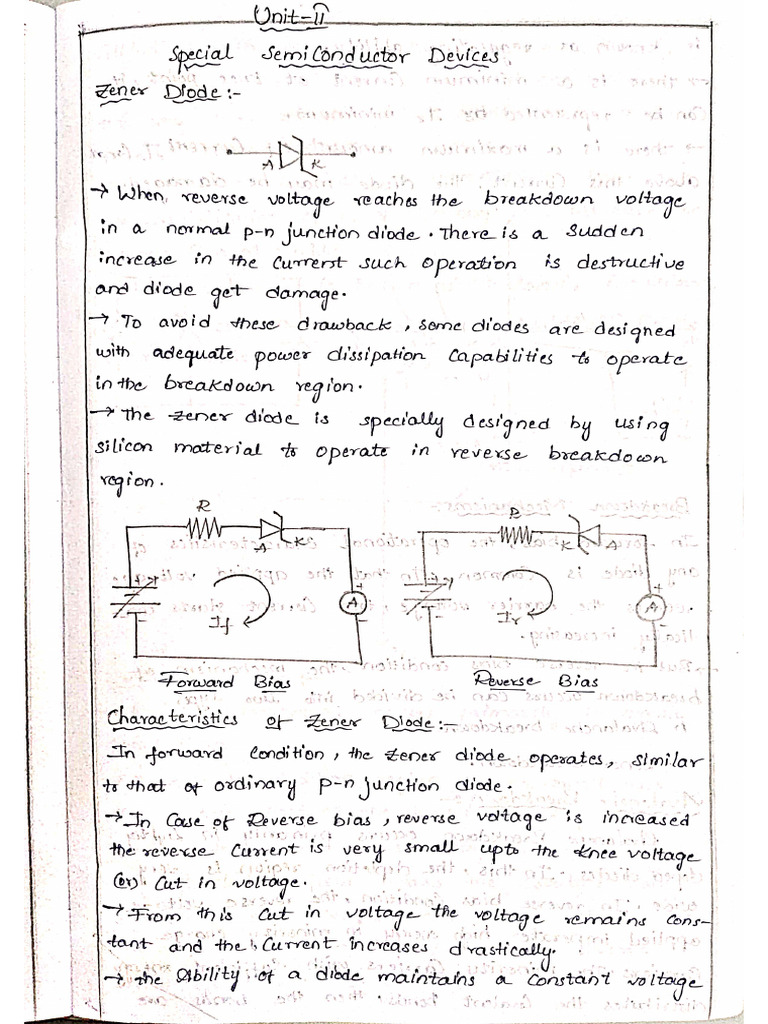 Unit-II
Special Semiconductor Devices
Zener Diode :-
A K
→ When reverse voltage reaches the breakdown voltage
in a normal p-n junction diode. There is a sudden
increase in the current such operation is destructive
and diode get damage.
→ To avoid these drawback, some diodes are designed
with adequate power dissipation capabilities to operate
in the breakdown region.
→ The zener diode is specially designed by using
silicon material to operate in reverse breakdown
region.
R R
A K K A
+ +
If A Ir A
- -
Forward Bias Reverse Bias
Characteristics of Zener Diode :-
In forward condition, the zener diode operates, similar
to that of ordinary p-n junction diode.
→ In case of Reverse bias, reverse voltage is increased
the reverse current is very small upto the knee voltage
(or) cut in voltage.
→ From this cut in voltage the voltage remains cons-
tant and the current increases drastically.
→ the Ability of a diode maintains a constant voltage